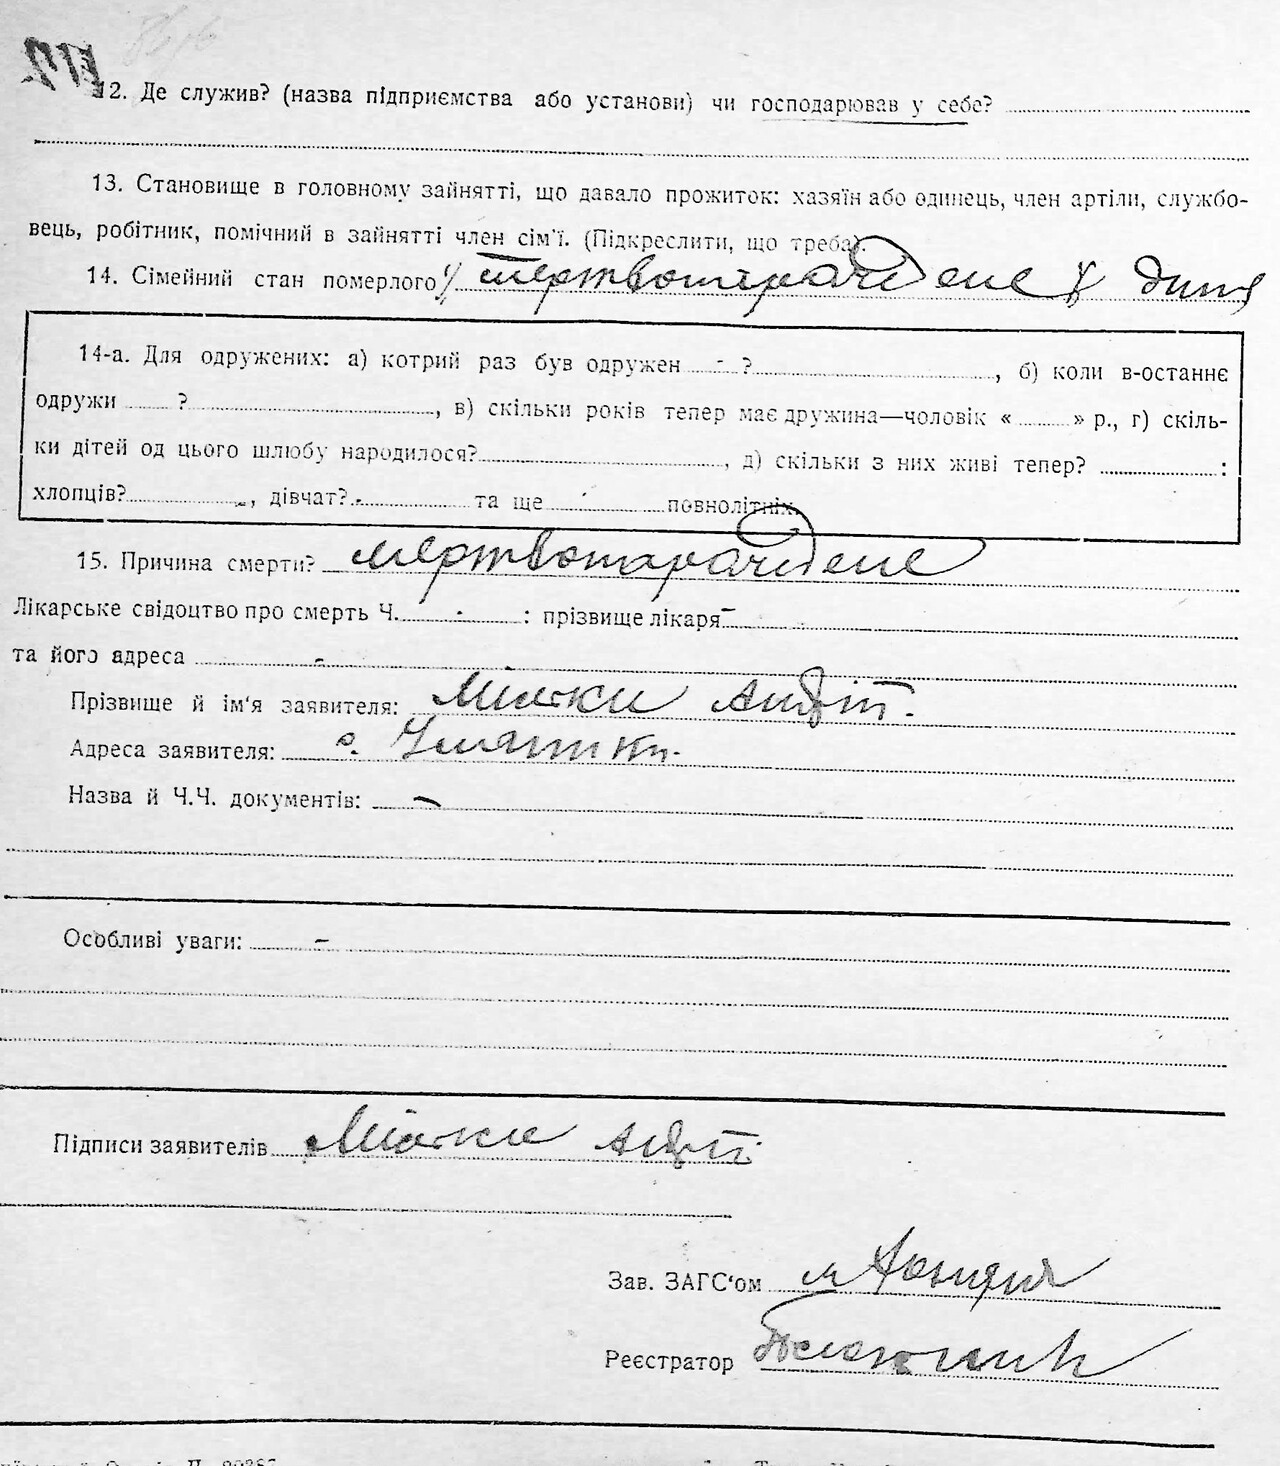 12. Де служив? (назва підприємства або установи) чи господарював у себе?
13. Становище в головному зайнятті, що давало прожиток: хазяїн або одинець, член артіли, службо-
вець, робітник, помічний в зайнятті член сім'ї. (Підкреслити, що треба).
14. Сімейний стан померлого мертвонарожденне
14-а. Для одружених: а) котрий раз був одружен - ?, б) коли в-останнє
одружи ?, в) скільки років тепер має дружина—чоловік « » р., г) скіль-
ки дітей од цього шлюбу народилося?, д) скільки з них живі тепер? :
хлопців? , дівчат? - та ще повнолітніх.
15. Причина смерти? мертвонарожденне
Лікарське свідоцтво про смерть Ч. - : прізвище лікаря -
та його адреса -
Прізвище й ім'я заявителя:
Адреса заявителя: с.
Назва й Ч.Ч. документів: -
Особливі уваги: -
Підписи заявителів
Зав. ЗАГС'ом
Реєстратор